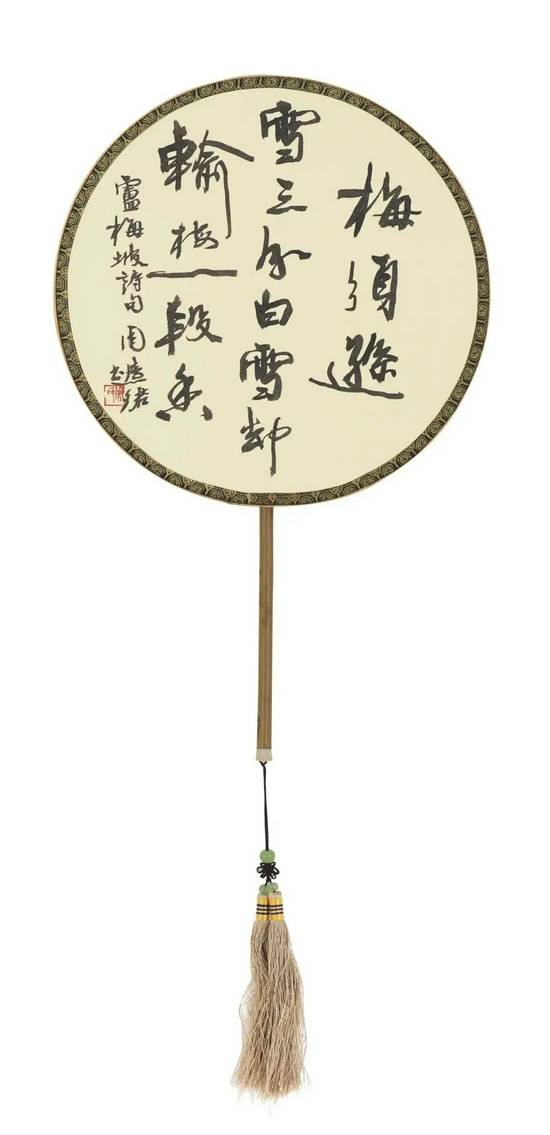 梅須遜
雪三分白雪却
輸梅一段香
盧梅坡詩句周慧珺书